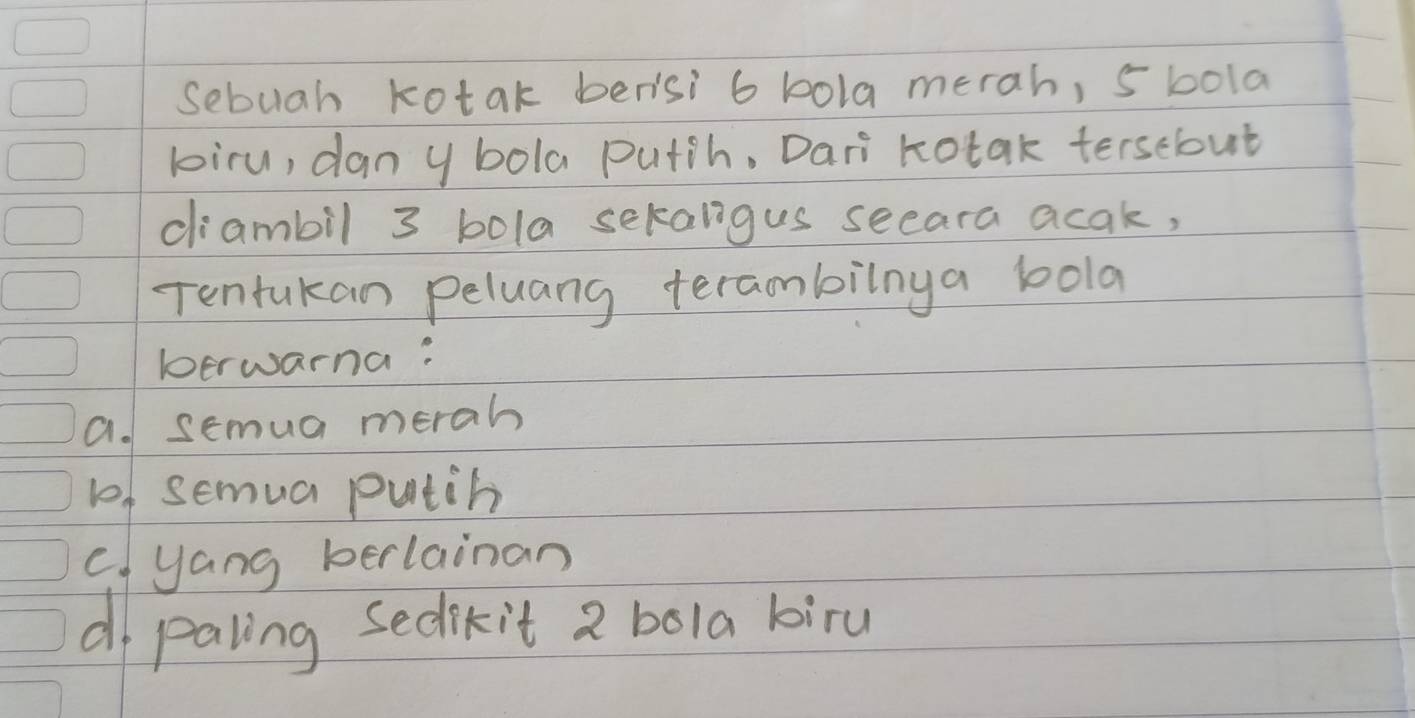 Sebuah kotak berisi 6 bola merah, 5 bola
biru, dan y bola putih. Dari kotak tersebut
diambil 3 bola sekaligus secara acak,
Tentukan peluang terambilnya bola
berwarna :
a. semua merah
b. semua putih
c. yang berlainan
d. paling sedikit 2 bola biru